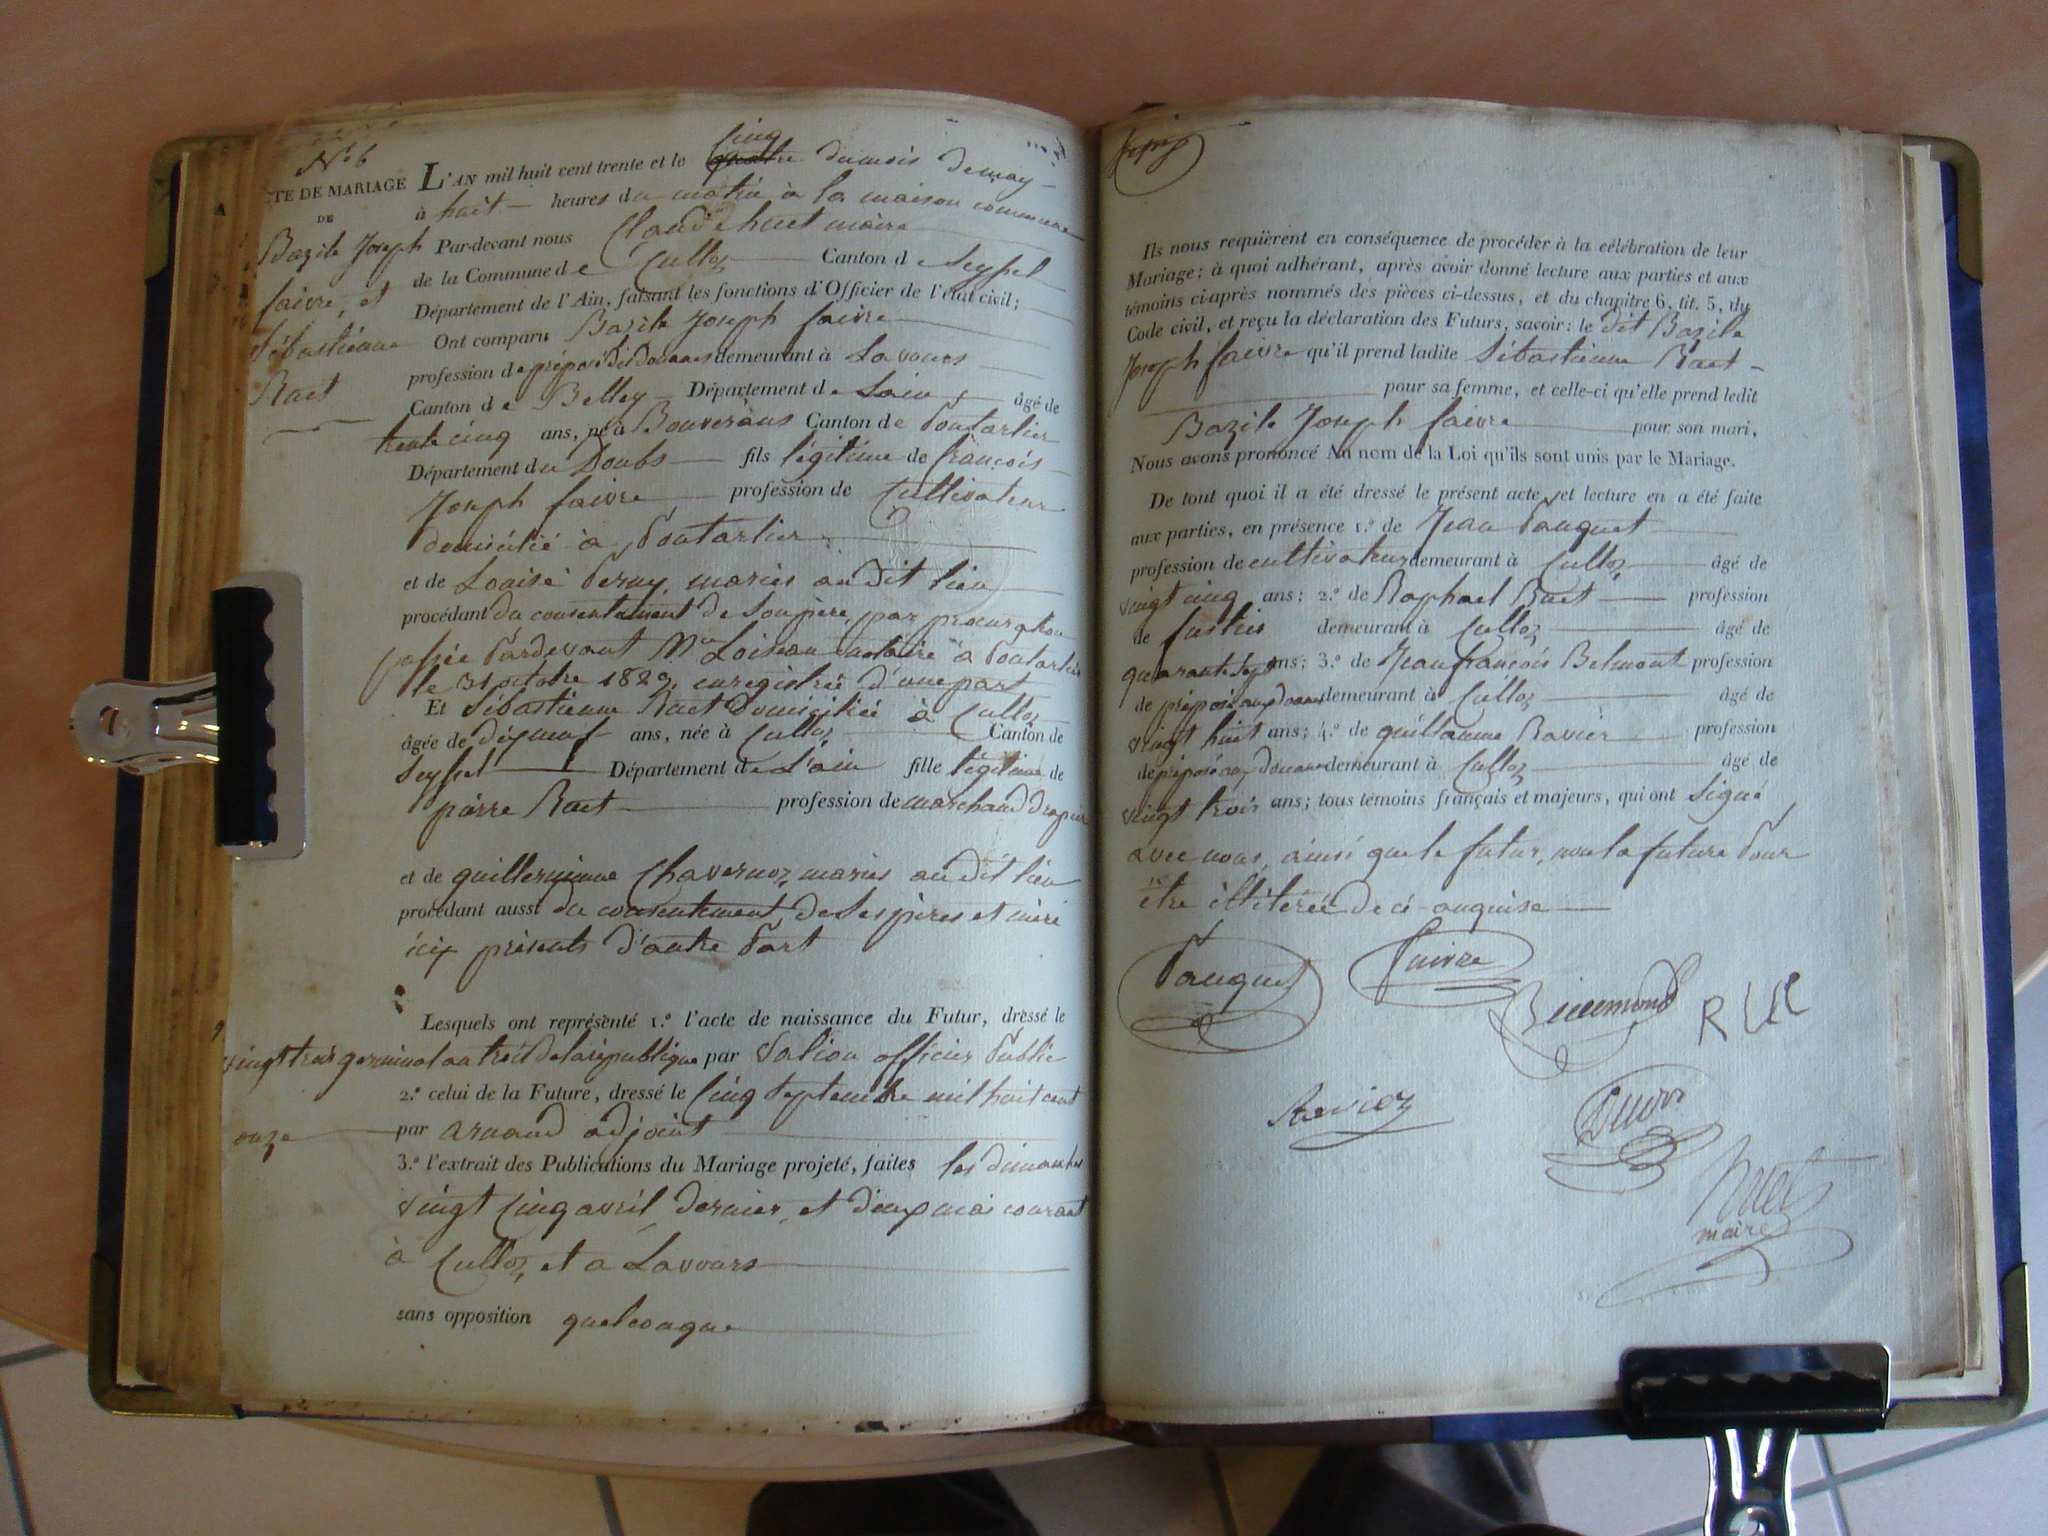 N° 6
TE DE MARIAGE
DE
Bazile Joseph
faivre, et
Sébastienne
Ract
L'AN mil huit cent trente et le cinq du mois de may
à huit heures du matin à la maison commune
Par-devant nous Claude huet maire
de la Commune de Culloz Canton de Seyssel
Département de l'Ain, faisant les fonctions d'Officier de l'état civil;
Ont comparu Bazile Joseph faivre
profession de préposé des douanes demeurant à Lavours
Canton de Belley Département de Lain, âgé de
trente cinq ans, né à Bouverans Canton de Pontarlier
Département du Doubs fils légitime de françois
Joseph faivre profession de Cultivateur
domicilié à Pontarlier
et de Louise mariés au dit lieu
procédant du consentement de son père, par procuration
passée Pardevant Me Loiseau notaire à Pontarlier
le 31 octobre 1829, enregistrée d'une part
Et Sébastienne Ract Domiciliée à Culloz
âgée de dixneuf ans, née à Culloz Canton de
Seyssel Département de L'ain fille légitime de
pierre Ract profession de marchand drapier
et de guillermine Chavernoz, mariés au dit lieu
procédant aussi du consentement, de Ses pères et mère
icy présents d'autre Part
Lesquels ont représenté 1.° l'acte de naissance du Futur, dressé le
vingt trois germinal an trois de la république par officier Public
2.° celui de la Future, dressé le Cinq Septembre mil huit cent
onze par arnaud adjoint
3.° l'extrait des Publications du Mariage projeté, faites les dimanches
vingt Cinq avril dernier, et deux mai courant
à Culloz, et a Lavours
sans opposition quelconque
Ils nous requièrent en conséquence de procéder à la célébration de leur
Mariage; à quoi adhérant, après avoir donné lecture aux parties et aux
témoins ci-après nommés des pièces ci-dessus, et du chapitre 6, tit. 5, du
Code civil, et reçu la déclaration des Futurs, savoir: le dit Bazile
Joseph faivre qu'il prend ladite Sébastienne Ract
pour sa femme, et celle-ci qu'elle prend ledit
Bazile Joseph faivre pour son mari,
Nous avons prononcé Au nom de la Loi qu'ils sont unis par le Mariage.
De tout quoi il a été dressé le présent acte et lecture en a été faite
aux parties, en présence 1.° de Jean Pauquet
profession de cultivateur demeurant à Culloz âgé de
vingt cinq ans; 2.° de Raphael Ruet profession
de demeurant à Culloz âgé de
quarante Sept ans; 3.° de Jean françois Belmont profession
de préposé aux douanes demeurant à Culloz âgé de
vingt huit ans; 4.° de guillaume Ravier profession
de préposé aux douanes demeurant à Culloz âgé de
vingt trois ans; tous témoins français et majeurs, qui ont Signé
avec nous, ainsi que le futur, non la future Pour
être illiterée de ce enquise
Pauquet
Faivre
Ravier
huet
maire